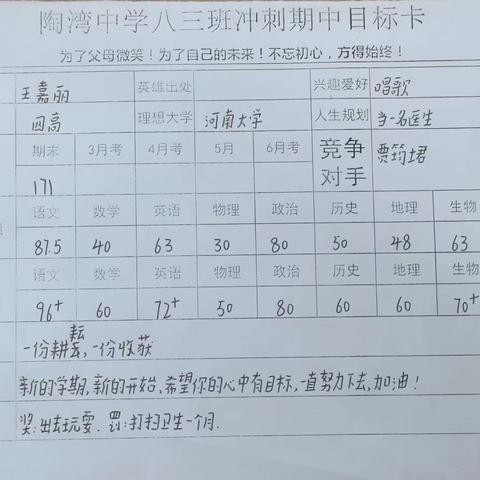 陶湾中学八三班冲刺期中目标卡
为了父母微笑！为了自己的未来！不忘初心，方得始终！
王嘉丽 英雄出处 兴趣爱好 唱歌
四高 理想大学 河南大学 人生规划 当一名医生
期末 3月考 4月考 5月 6月考 竞争对手 贾筠珺
171
语文 数学 英语 物理 政治 历史 地理 生物
87.5 40 63 30 80 50 48 63
语文 数学 英语 物理 政治 历史 地理 生物
96+ 60 72+ 50 80 60 60 70+
一份耕耘，一份收获
新的学期，新的开始，希望你的心中有目标，一直努力下去，加油！
奖：出去玩耍。罚：打扫卫生一个月.